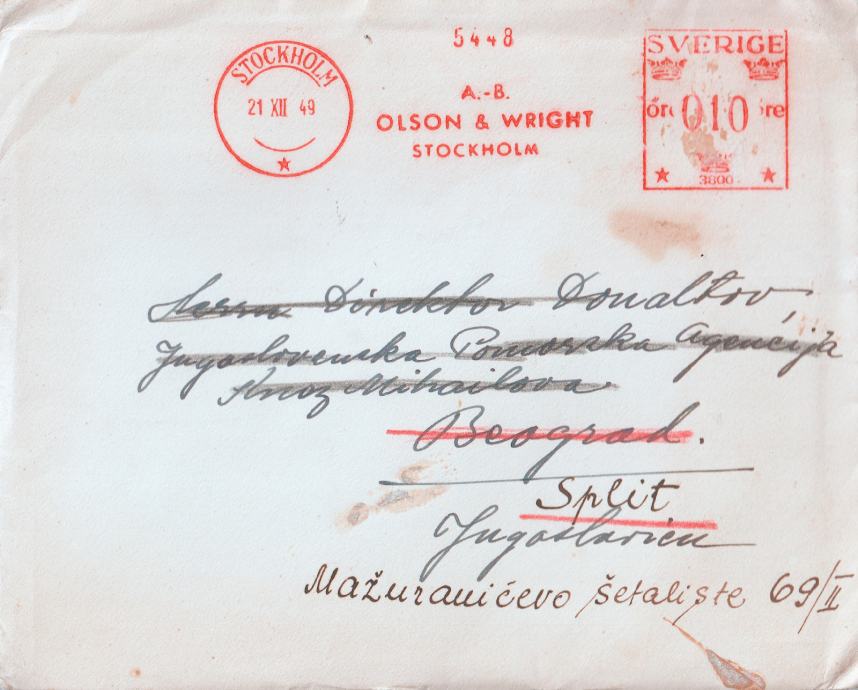 5448
STOCKHOLM
21 XII 49
A.-B.
OLSON & WRIGHT
STOCKHOLM
SVERIGE
öre 010 öre
3800
Herrn Direktor Donaltov,
Jugoslovenska Pomorska Agencija
Knez Mihailova
Beograd.
Split
Jugoslavien
Mažuranićevo šetalište 69/II